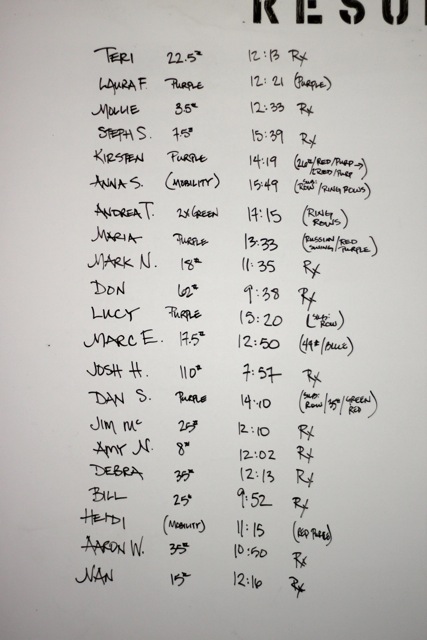 RESU
TERI 22.5# 12:13 Rx
LAURA F. PURPLE 12:21 (PURPLE)
MOLLIE 35# 12:33 Rx
STEPH S. 75# 15:39 Rx
KIRSTEN PURPLE 14:19 (26#/RED/PURP→)
ANNA S. (MOBILITY) 15:49 (SUB: ROW/RING ROWS)
ANDREA T. 2xGREEN 17:15 (RING ROWS)
MARIA PURPLE 13:33 (RUSSIAN SWING/RED PURPLE)
MARK N. 18# 11:35 Rx
DON 62# 9:38 Rx
LUCY PURPLE 15:20 (SUB: ROW)
MARC E. 17.5# 12:50 (44#/BLUE)
JOSH H. 110# 7:57 Rx
DAN S. PURPLE 14:10 (SUB: ROW/35#/GREEN RED)
JIM Mc 25# 12:10 Rx
AMY N. 8# 12:02 Rx
DEBRA 35# 12:13 Rx
BILL 25# 9:52 Rx
HEIDI (MOBILITY) 11:15 (RED PURPLE)
AARON W. 35# 10:50 Rx
NAN 15# 12:16 Rx